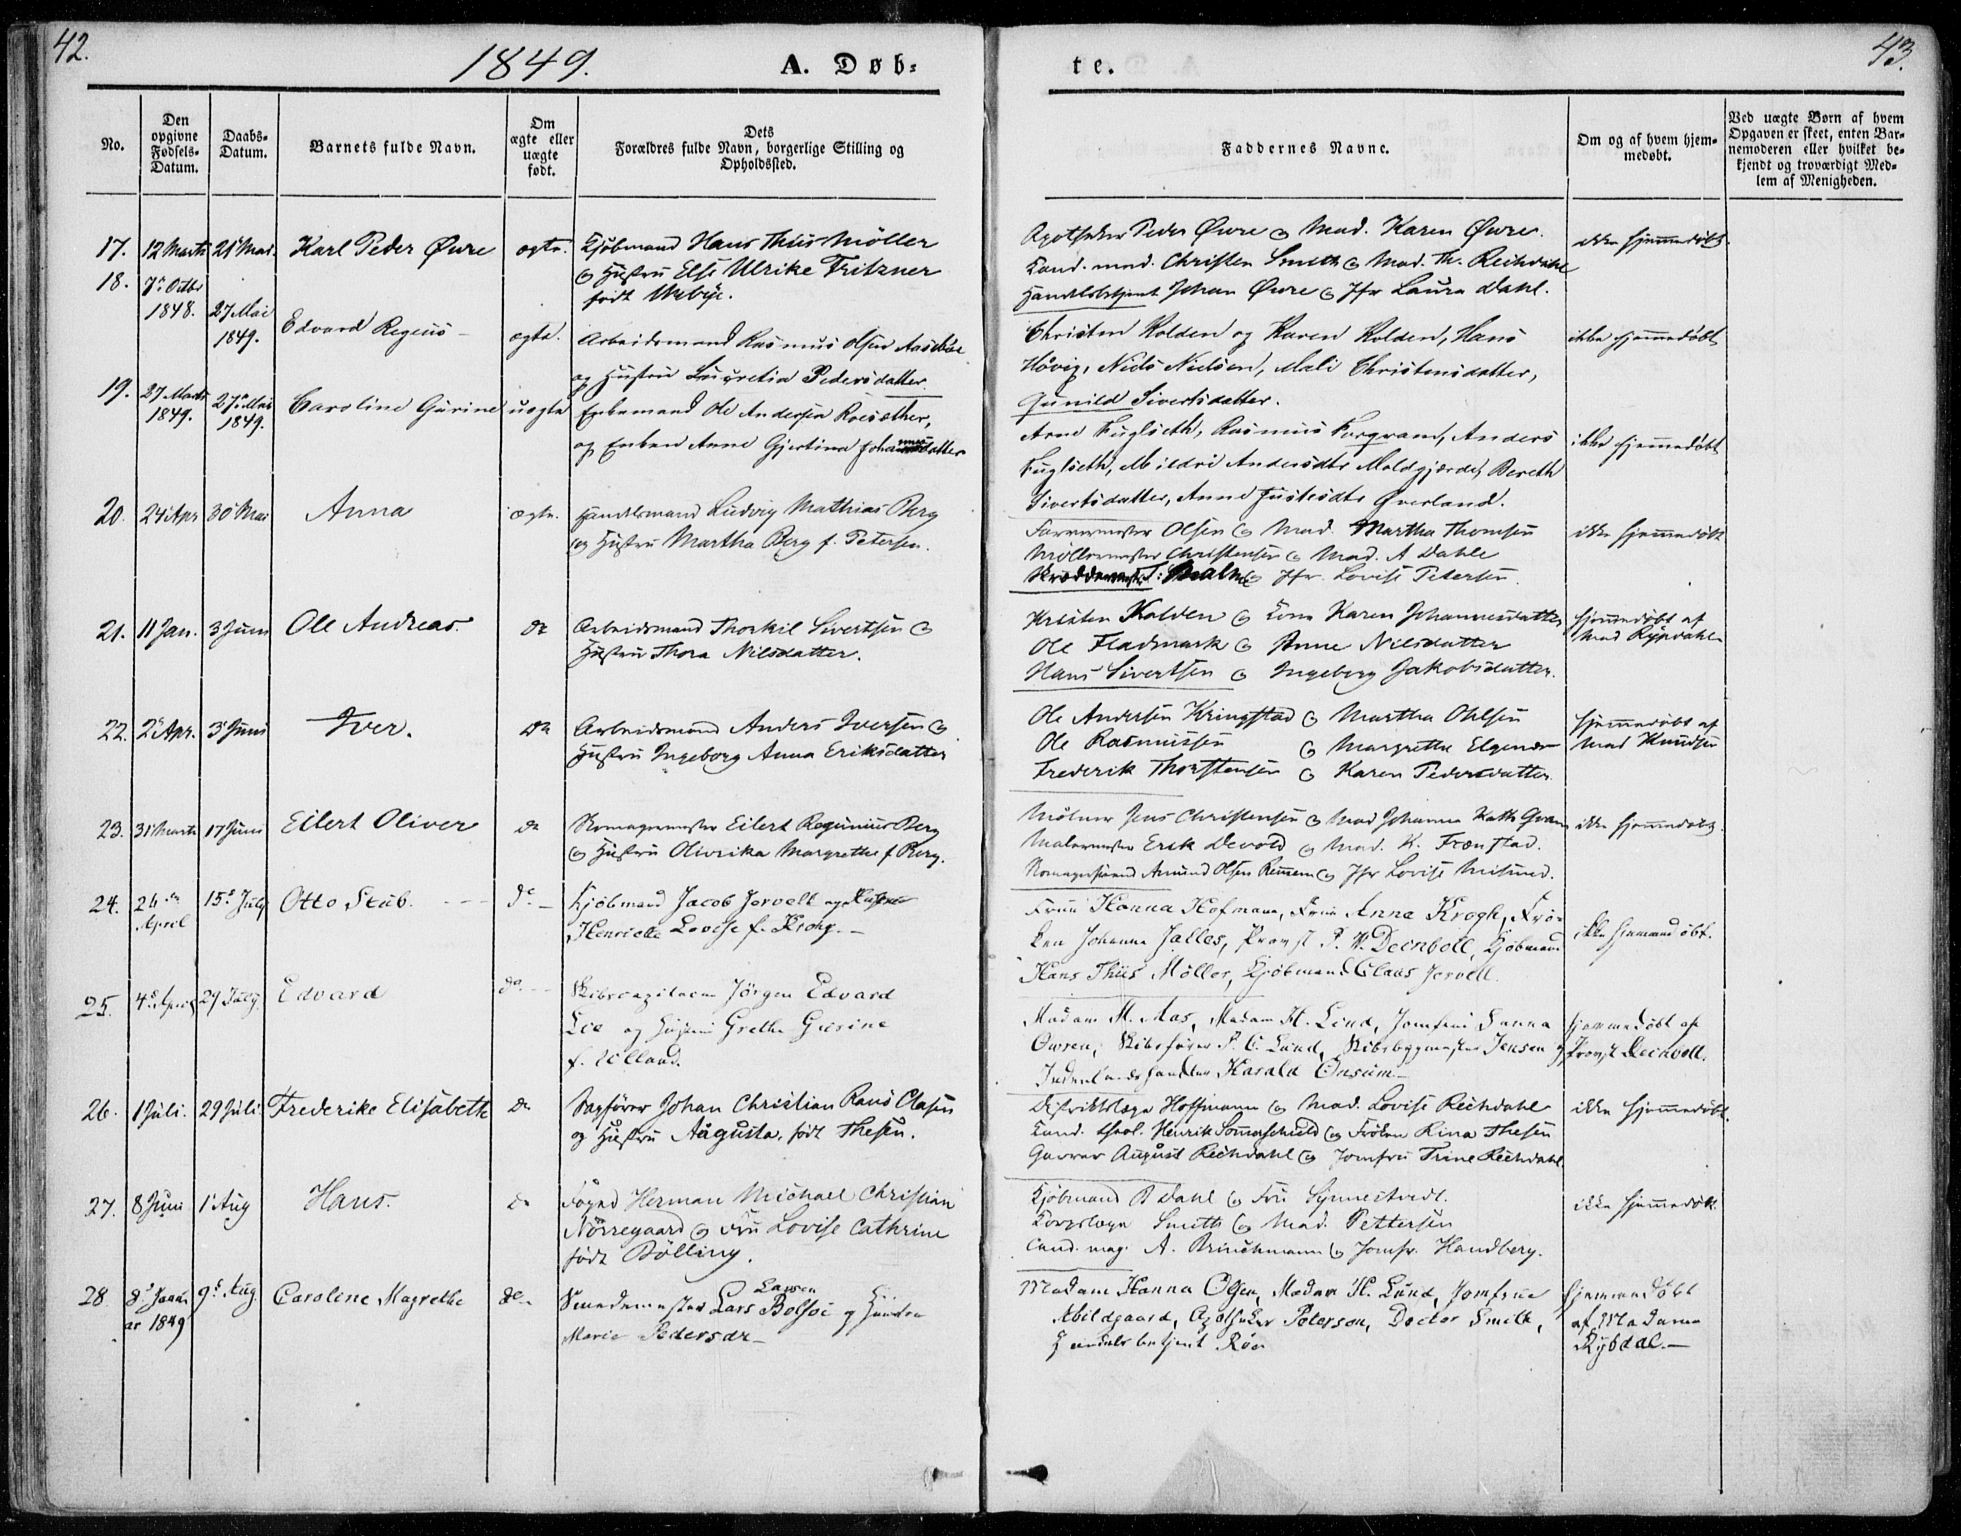 42.
1849.
A. Døb-
te.
43.
No.
Den opgivne Fødsels-Datum.
Daabs-Datum.
Barnets fulde Navn.
Om ægte eller uægte født.
Dets Forældres fulde Navn, borgerlige Stilling og Opholdssted.
Faddernes Navne.
Om og af hvem hjemmedøbt.
Ved uægte Børn af hvem Opgaven er skeet, enten Barnemoderen eller hvilket bekjendt og troværdigt Medlem af Menigheden.
17. 12 Marts 28 Mai Karl Peder Øwre ægte. Kjøbmand Hans Thiis Möller
& Hustru Else Ulrike Fritzner
født
Apotheker Peder Øwre & Mad. Karen Øwre.
Cand. med. Christen Smith & Mad. Th. Reichdahl
Handelsbetjent Johan Øwre & Jfr Laura Dahl.
ikke hjemmedøbt.
18. 7de Octbr 1848. 27 Mai 1849. Edvard Regius ægte. Arbeidsmand Rasmus Olsen
og Hustru Lucretia Pedersdatter.
Christen Kolden og Karen Kolden, Hans
Hövig, Niels Nielsen, Mali Christensdatter,
Gunild Sivertsdatter.
ikke hjemmedøbt
19. 27 Marts 1849. 27de Mai 1849. Caroline Gurine uægte Enkemand Ole Andersen Roesæther,
og Enken Anne Gjertine Johannesdatter
Arne Fugleseth, Rasmus Anders
Fugleseth, Mildri Andersdtr Moldgjærdet, Bereth
Sivertsdatter, Anne Justesdtr Øverland.
ikke hjemmedøbt
20. 24 Apr 30 Mai Anna ægte. Handelsmand Ludvig Mathias Berg
og Hustru Martha Berg f. Petersen.
Farvermester Olsen & Mad. Martha Thomsen
Möllermester Christensen & Mad. A Dahle
Skræddermester Malm & Jfr. Lovise Petersen.
ikke hjemmedøbt
21. 11 Jan. 3 Juni Ole Andreas. do Arbeidsmand Thorkil Sivertsen &
Hustru Thora Nilsdatter.
Kristen Kolden & Kone Karen Johannesdatter
Ole Fladmark & Anne Nilsdatter
Hans Sivertsen & Ingeborg Jakobsdatter.
hjemmedøbt af
Mad Rypdahl
22. 2 Apr. 3 Juni Iver. do Arbeidsmand Anders Iversen &
Hustru Ingeborg Anna Eriksdatter
Ole Andersen Kringstad & Martha Ohlsen
Ole Rasmussen & Margrethe Elgenæs
Frederik Thorstensen & Karen Pedersdatter.
hjemmedøbt af
Mad Knudsen
23. 31 Marts 17 Juni Eilert Oliver do Skomagermester Eilert Reginius Berg
& Hustru Oliverika Margrethe f Berg.
Mölner Jens Christensen & Mad Johanna Kath
Malermester Erik Devold & Mad. K. Frønstad.
Skomagersvend Amund Olsen & Jfr Lovise
ikke hjemmedøbt.
24. 24de April 15de July Otto Stub. do Kjøbmand Jacob Jervell og Hustru
Henriette Lovise f. Krohg.
Frue Hanna Hofmann, Frue Anna Krogh, Frö-
ken Johanne Jalles, Provst P. W. Deinboll, Kjøbmand
Hans Thiis Möller, Kjøbmand Claus Jervell.
ikke hjemmedøbt.
25. 4de April 29 July. Edvard do Skibscapitain Jörgen Edvard
Lie og Hustru Grethe Gurine
f.
Madam M. Aas, Madam H. Lund, Jomfrue Sanna
Owren, Skibsfører P. C. Lund, Skibsbygmester Jensen og
Harald Onsum
hjemmedøbt af
Provst Deinboll.
26. 1 Juli. 29 Juli. Frederike Elisabeth do Sagförer Johan Christian Ravs Clasen
og Hustru Augusta, født Thesen.
Distriktslæge Hoffmann & Mad. Lovise Reichdahl
Cand. theol. Henrik Somerschield & Fröken Rina Thesen
Garver August Reichdahl & Jomfru Trine Reichdahl.
ikke hjemmedøbt.
27. 8 Juni 1 Aug Hans. do Foged Herman Michael Christian
Nörregaard & Fru Lovise Cathrine
født Bölling.
Kjøbmand P Dahl & Fru Synnestvedt.
Korpslæge Smith & Mad. Pettersen
Cand. mag. A. Brinchmann & Jomfr. Handberg.
ikke hjemmedøbt.
28. 8de Janu ar 1849 9de Aug. Caroline Magrethe do Smedemester Lars Larsen Bolsöe og Hustru
Marie Pedersdr
Madam Hanna Olsen, Madam H. Lund, Jomfrue
Abildgaard, Apotheker Peterson, Doctor Smith,
Handelsbetjent
hjemmedøbt
af Madame
Rybdal.